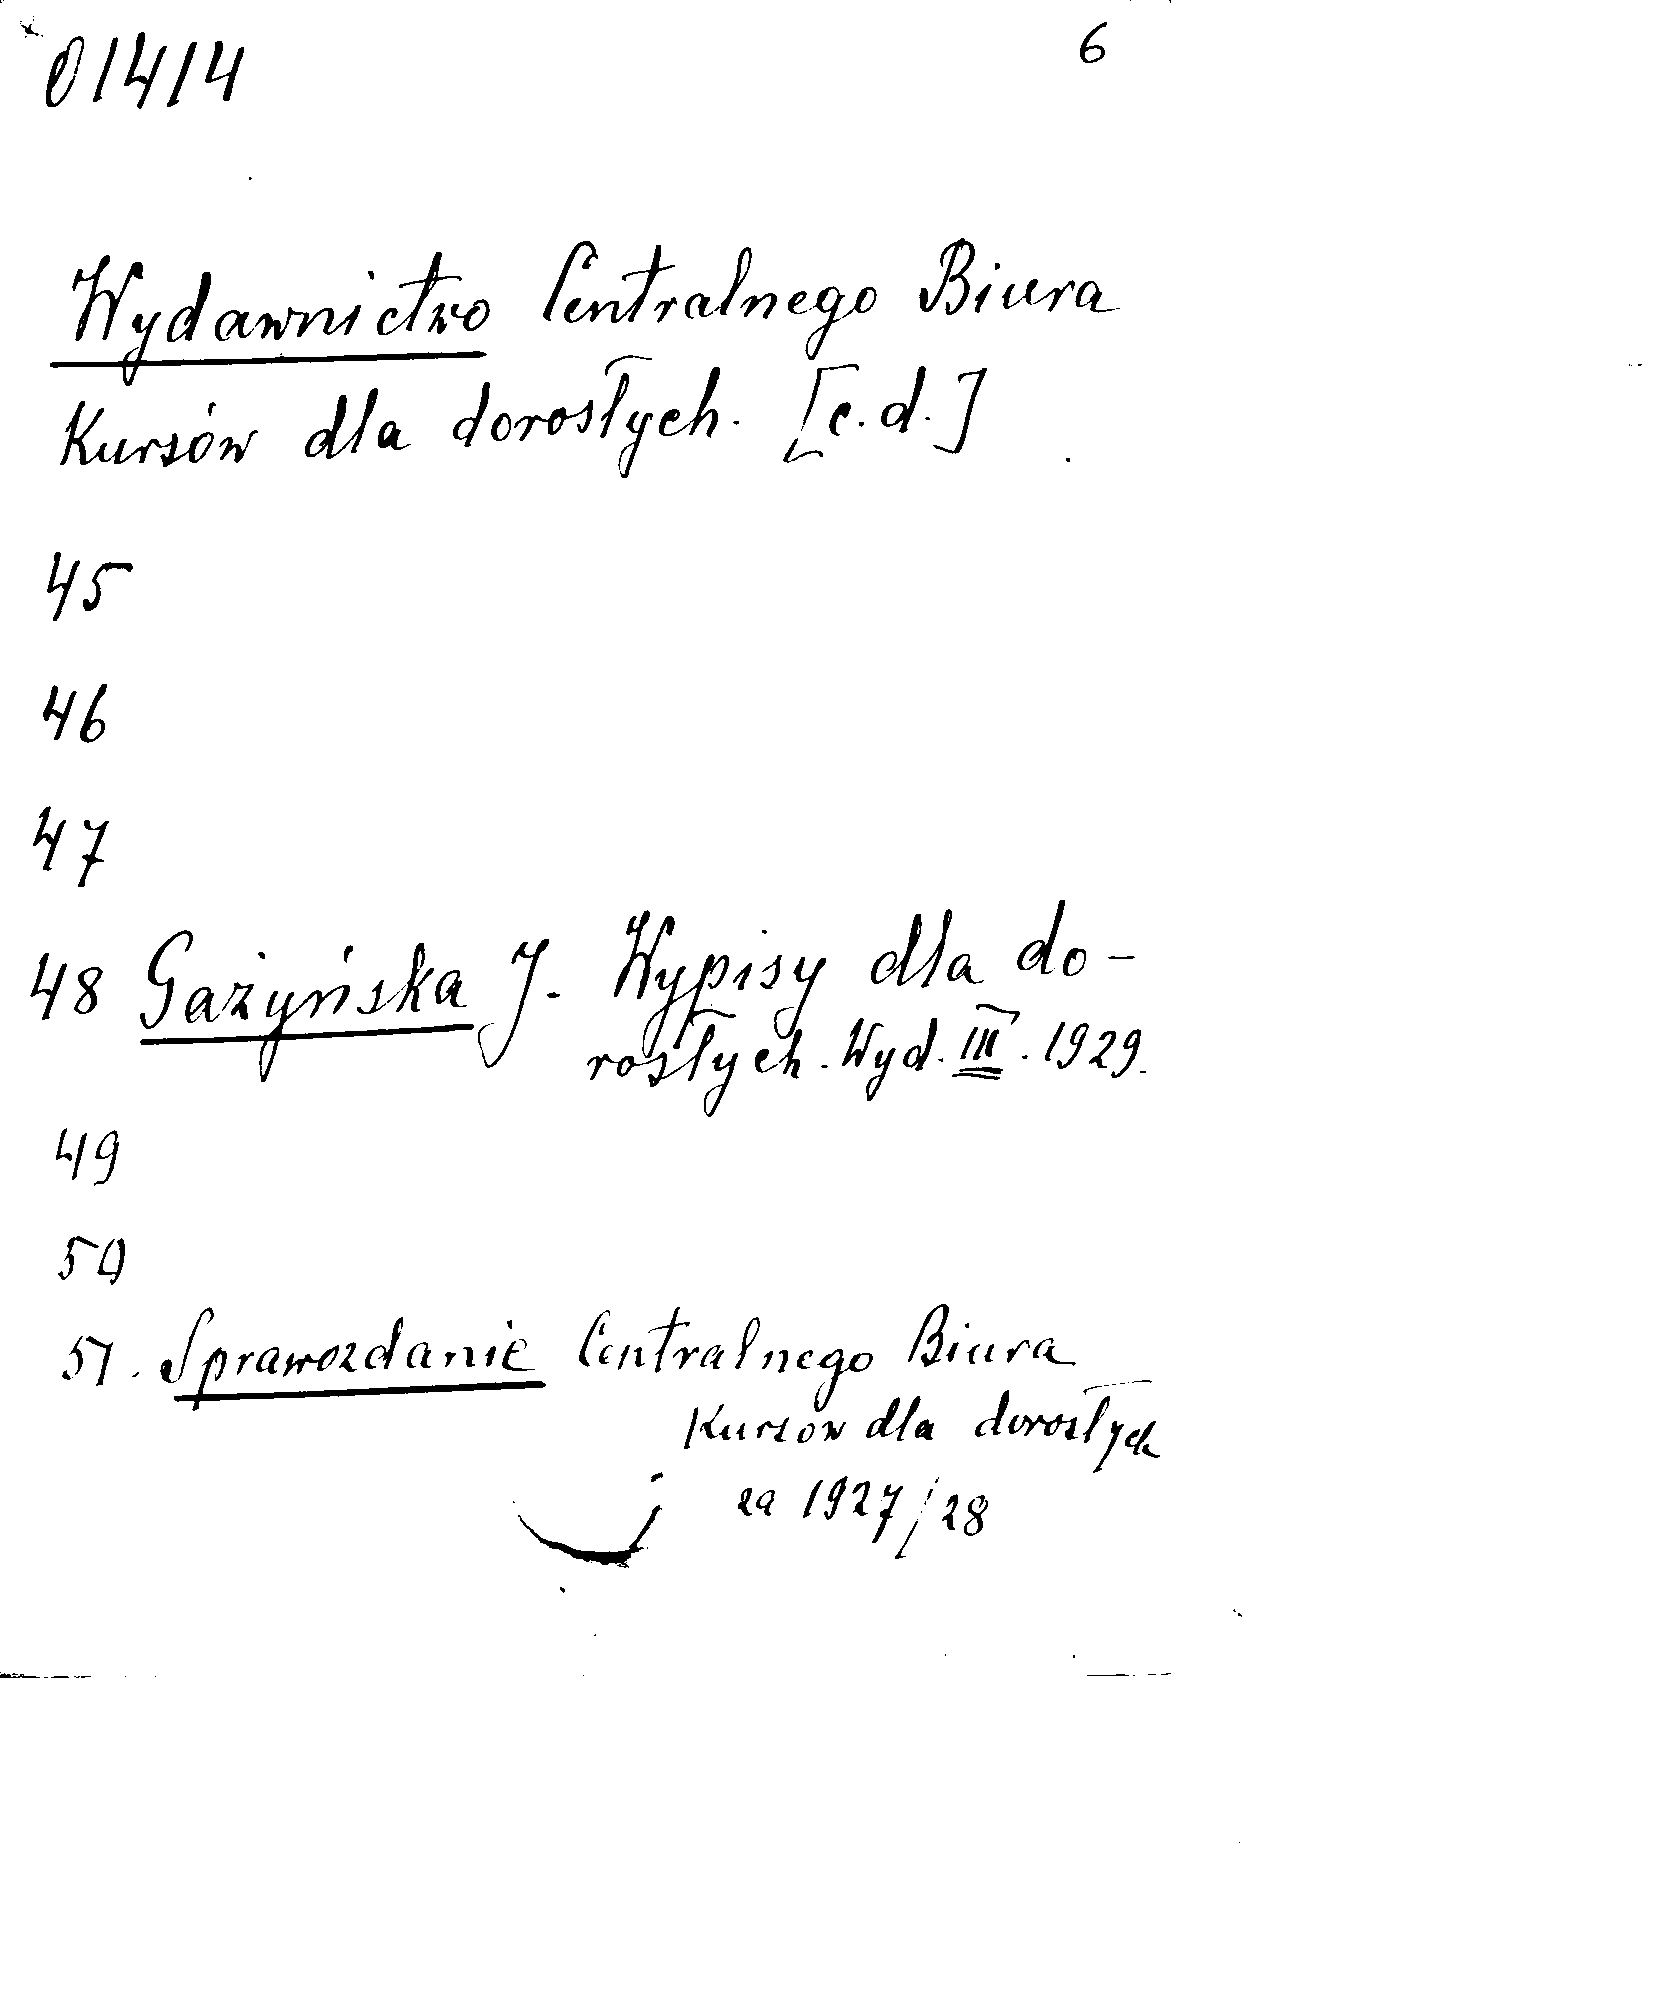 01414
6
Wydawnictwo Centralnego Biura
Kursów dla dorosłych. [c.d.]
45
46
47
48 Gażyńska J. Wypisy dla do-
rosłych. Wyd. III. 1929.
49
50
51. Sprawozdanie Centralnego Biura
Kursów dla dorosłych
za 1927/28